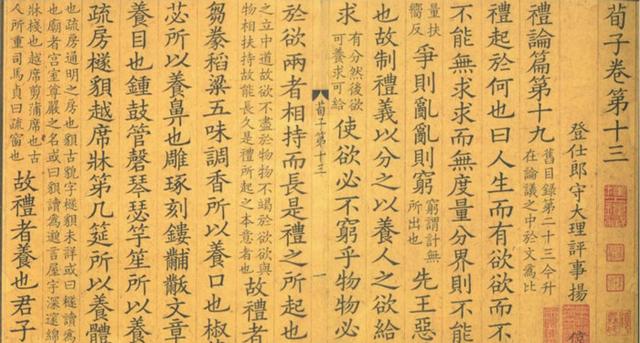 荀子卷第十三
登仕郎守大理評事揚
禮論篇第十九
舊目錄第二十三今升
在論議之中於文為比
禮起於何也曰人生而有欲欲而不
不能無求求而無度量分界則不能
量扶
嚮反
爭則亂亂則窮
窮謂計無
所出也
先王惡
也故制禮義以分之以養人之欲給
求
有分然後欲
可養求可給
使欲必不窮乎物物必
荀子第十三
一
於欲兩者相持而長是禮之所起也
之立中道故欲不盡於物物不竭於欲欲與
物相扶持故能長久是禮所起之本意者也
故禮者
芻豢稻粱五味調香所以養口也椒
苾所以養鼻也雕琢刻鏤黼黻文章
養目也鍾鼓管磬琴瑟竽笙所以養
疏房檖䫉越席牀第几筵所以養體
也疏房通明之房也䫉古貌字檖䫉未詳或曰檖讀為
也廟者宮室尊嚴之名或曰䫉讀為邈言屋宇深邃綿
牀棧也越席剪蒲席也古
人所重司馬貞曰疏窗也
故禮者養也君子